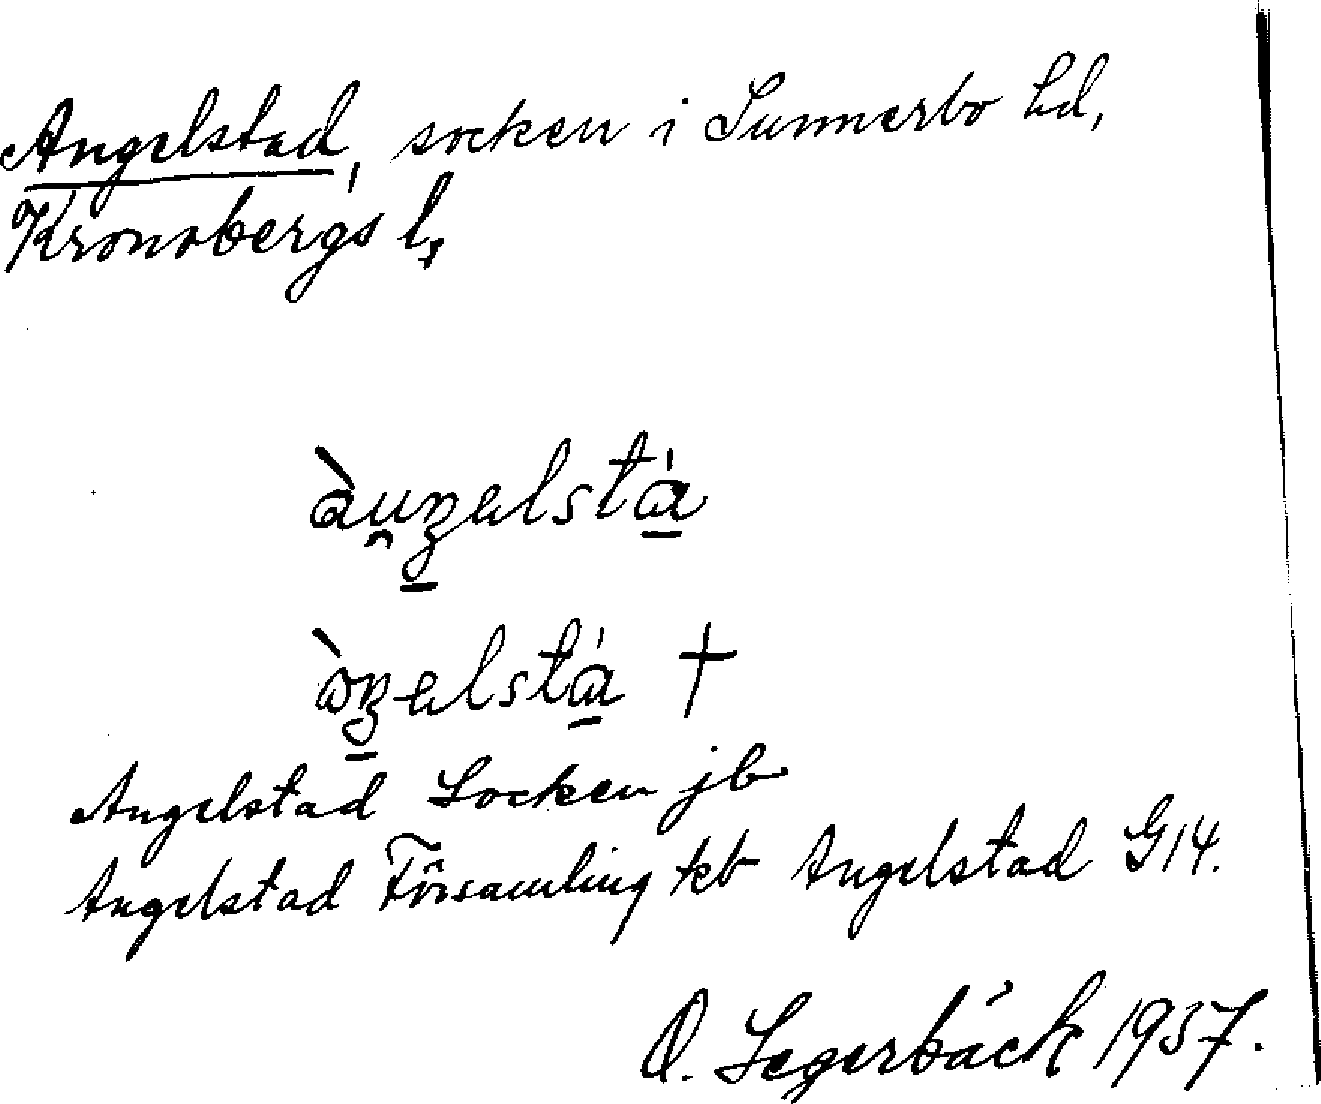 Angelstad, socken i Sunnerbo hd,
Kronobergs l.
àu̯ꞑəlstá̱
òꞑəlstá̱ †
Angelstad Socken jb
Angelstad Församling kb Angelstad G14.
O. Segerbäck 1937.